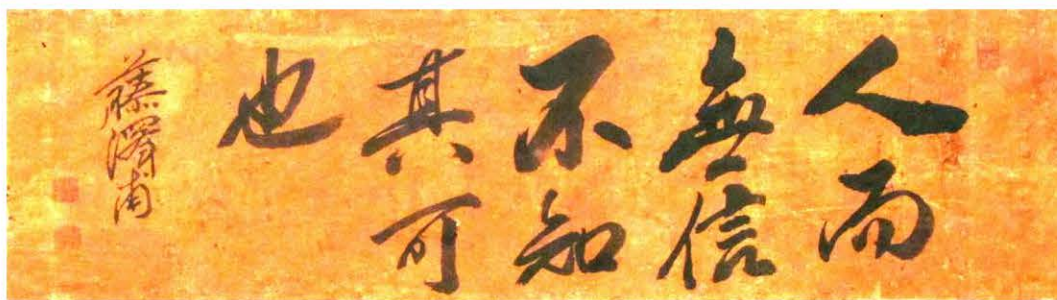 人而
無信
不知
其可
也
藤澤甫